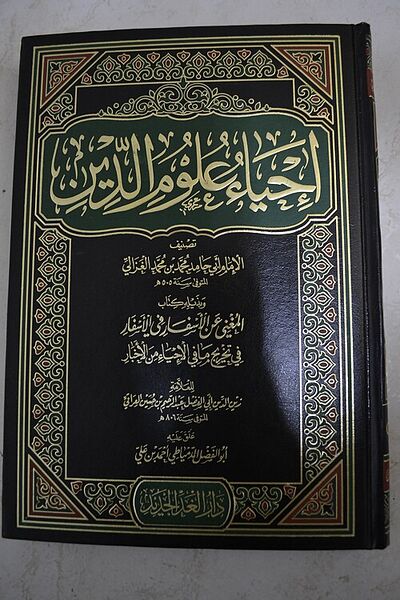 إحياء علوم الدين
تصنيف
الإمام أبي حامد محمد بن محمد الغزالي
المتوفى سنة ٥٠٥ هـ
وبذيله كتاب
المغني عن الأسفار في الأسفار
في تخريج ما في الإحياء من الأخبار
للعلامة
زين الدين أبي الفضل عبد الرحيم بن حسين العراقي
المتوفى سنة ٨٠٦ هـ
علق عليه
أبو الفضل الدمياطي أحمد بن علي
دار الغد الجديد